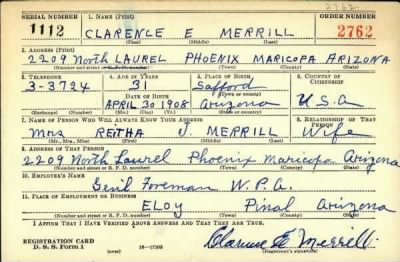 2762
SERIAL NUMBER 1. NAME (Print) ORDER NUMBER
1112 CLARENCE E MERRILL 2762
(First) (Middle) (Last)
2. ADDRESS (Print)
2209 North LAUREL PHOENIX MARICOPA ARIZONA
(Number and street or R. F. D. number) (Town) (County) (State)
3. TELEPHONE 4. AGE IN YEARS 5. PLACE OF BIRTH 6. COUNTRY OF CITIZENSHIP
3-3724 31 Safford
DATE OF BIRTH (Town or county)
APRIL 30 1908 Arizona U.S.A
(Exchange) (Number) (Mo.) (Day) (Yr.) (State or country)
7. NAME OF PERSON WHO WILL ALWAYS KNOW YOUR ADDRESS 8. RELATIONSHIP OF THAT PERSON
Mrs REITHA J. MERRILL Wife
(Mr., Mrs., Miss) (First) (Middle) (Last)
9. ADDRESS OF THAT PERSON
2209 North Laurel Phoenix Maricopa Arizona
(Number and street or R. F. D. number) (Town) (County) (State)
10. EMPLOYER'S NAME
Genl Foreman W.P.A.
11. PLACE OF EMPLOYMENT OR BUSINESS
ELOY Pinal Arizona
(Number and street or R. F. D. number) (Town) (County) (State)
I AFFIRM THAT I HAVE VERIFIED ABOVE ANSWERS AND THAT THEY ARE TRUE.
REGISTRATION CARD
D. S. S. FORM 1 (over) 16-17105 Clarence E Merrill
(Registrant's signature)